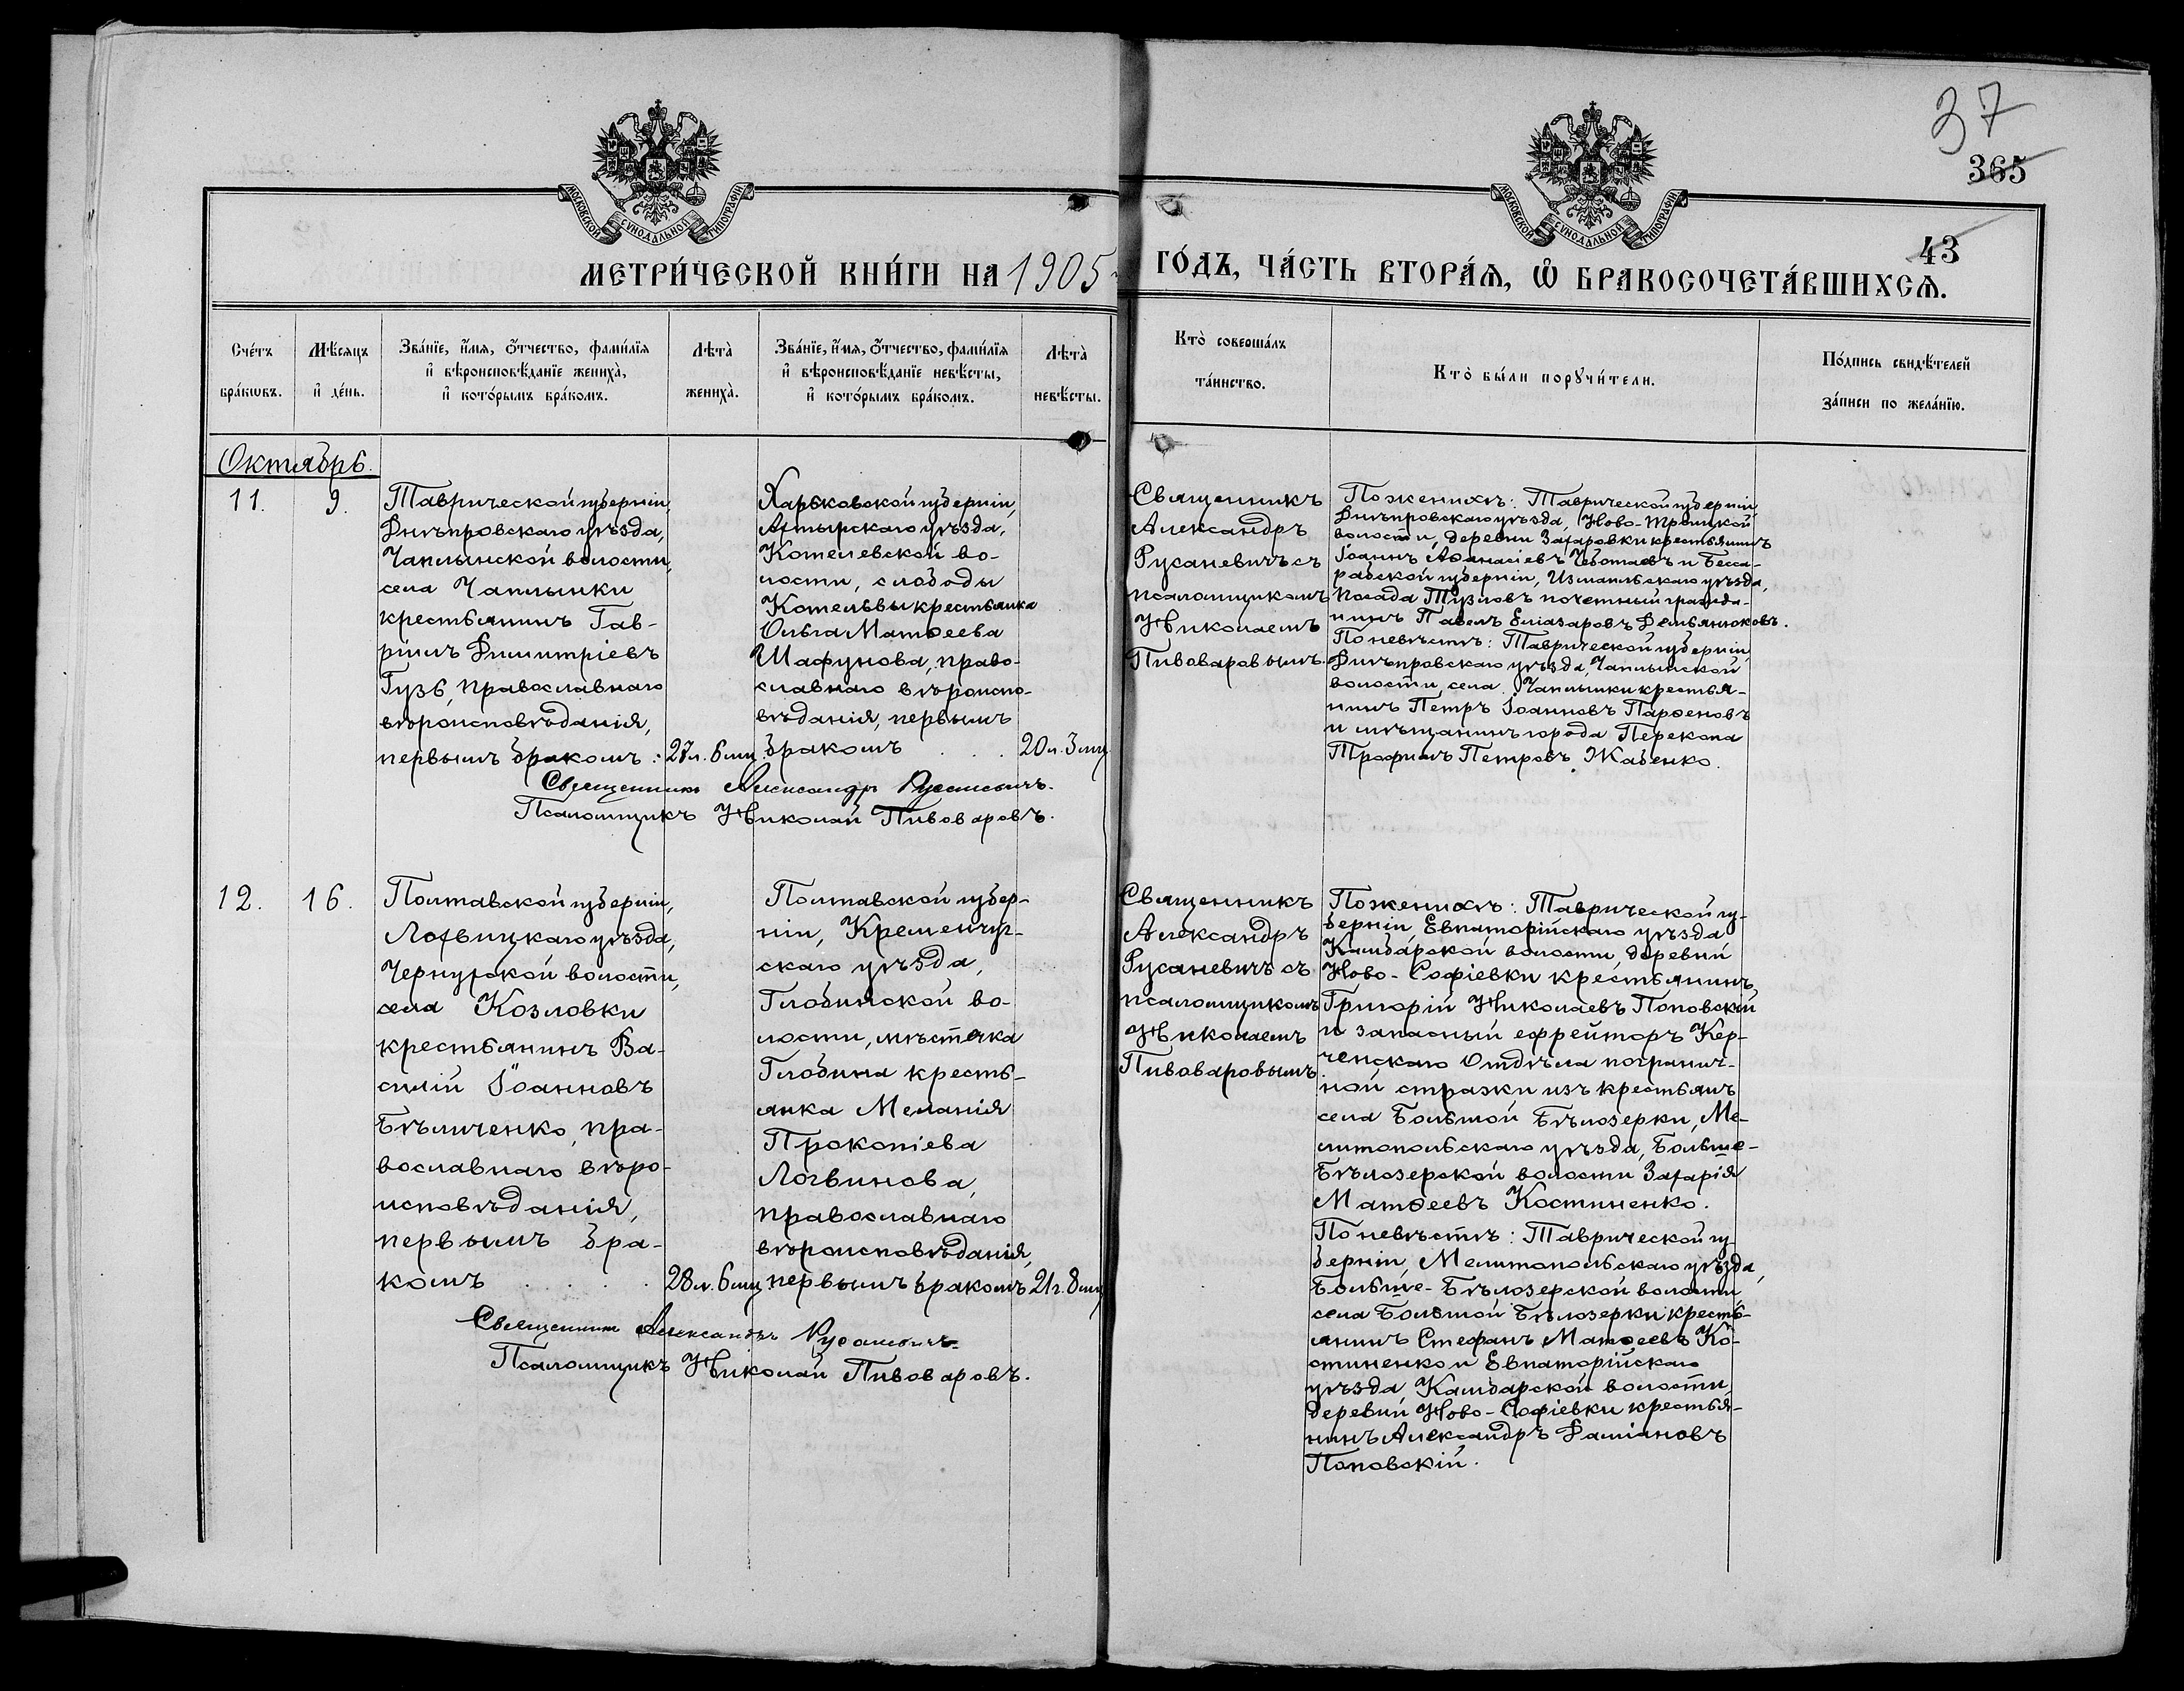 37
365
43
МОСКОВСКОЙ СѴНОДАЛЬНОЙ ТИПОГРАФІИ
МОСКОВСКОЙ СѴНОДАЛЬНОЙ ТИПОГРАФІИ
МЕТРИ́ЧЕСКОЙ КНИ́ГИ НА 1905 ГО́ДЪ, ЧА́СТЬ ВТОРА́Ѧ, Ѡ҆ БРАКОСОЧЕТА́ВШИХСѦ.
Сче́тъ
бра́кѡвъ.
Мѣ́сяцъ
и҆ де́нь.
Зва́нїе, и҆́мя, ѻ҆́тчество, фами́лїя
и҆ вѣроисповѣ́данїе жениха̀,
и҆ кото́рымъ бра́комъ.
Лѣта̀
жениха̀.
Зва́нїе, и҆́мя, ѻ҆́тчество, фами́лїя
и҆ вѣроисповѣ́данїе невѣ́сты,
и҆ кото́рымъ бра́комъ.
Лѣта̀
невѣ́сты.
Кто̀ соверша́лъ
та́инство.
Кто̀ бы́ли порꙋчи́тели.
По́дпись свидѣ́телей
за́писи по жела́нїю.
Октябрь.
11.
9.
Таврической губерніи,
Днѣпровскаго уѣзда,
Чаплынской волости,
села Чаплынки
крестьянинъ Гав-
ріилъ Димитріевъ
Гузь, православнаго
вѣроисповѣданія,
первымъ бракомъ :
27 л. 6 мц.
Харьковской губерніи,
Ахтырскаго уѣзда,
Котелевской во-
лости, слободы
Котельвы крестьянка
Ольга Матѳеева
Шафунова, право-
славнаго вѣроиспо-
вѣданія, первымъ
бракомъ . .
20 л. 3 мц
Священникъ Александръ Русаневичъ.
Псаломщикъ Николай Пивоваровъ.
Священникъ
Александръ
Русаневичъ съ
псаломщикомъ
Николаемъ
Пивоваровымъ.
По женихѣ: Таврической губерніи
Днѣпровскаго уѣзда, Ново-Троицкой
волости, деревни Захаровки крестьянинъ
Іоаннъ Аѳанасіевъ Чеботаевъ и Бесса-
рабской губерніи, Измаильскаго уѣзда,
посада Тузловъ почетный гражда-
нинъ Павелъ Еліазаровъ Демьянюковъ.
По невѣстѣ: Таврической губерніи,
Днѣпровскаго уѣзда, Чаплынской
волости, села Чаплынки крестья-
нинъ Петръ Іоанновъ Парѳеновъ
и мѣщанинъ города Перекопа
Трофимъ Петровъ Жабенко.
12.
16.
Полтавской губерніи,
Лохвицкаго уѣзда,
Чернухской волости,
села Козловки
крестьянинъ Ва-
силій Іоанновъ
Бѣличенко, пра-
вославнаго вѣро-
исповѣданія,
первымъ бра-
комъ . . . .
28 л. 6 мц.
Полтавской губер-
ніи, Кременчуг-
скаго уѣзда,
Глобинской во-
лости, мѣстечка
Глобина кресть-
янка Меланія
Прокопіева
Логвинова,
православнаго
вѣроисповѣданія,
первымъ бракомъ
21 г. 8 мц
Священникъ Александръ Русаневичъ
Псаломщикъ Николай Пивоваровъ.
Священникъ
Александръ
Русаневичъ съ
псаломщикомъ
Николаемъ
Пивоваровымъ
По женихѣ: Таврической гу-
берніи, Евпаторійскаго уѣзда
Камбарской волости, деревни
Ново-Софіевки крестьянинъ
Григорій Николаевъ Поповскій
и запасный ефрейторъ Кер-
ченскаго Отдѣла погранич-
ной стражи изъ крестьянъ
села Большой Бѣлозерки, Ме-
литопольскаго уѣзда, Больше-
Бѣлозерской волости Захарія
Матѳеевъ Костиненко.
По невѣстѣ: Таврической гу-
берніи, Мелитопольскаго уѣзда,
Больше-Бѣлозерской волости,
села Большой Бѣлозерки кресть-
янинъ Стефанъ Матѳеевъ Ко-
стиненко и Евпаторійскаго
уѣзда, Камбарской волости,
деревни Ново-Софіевки крестья-
нинъ Александръ Даміановъ
Поповскій.